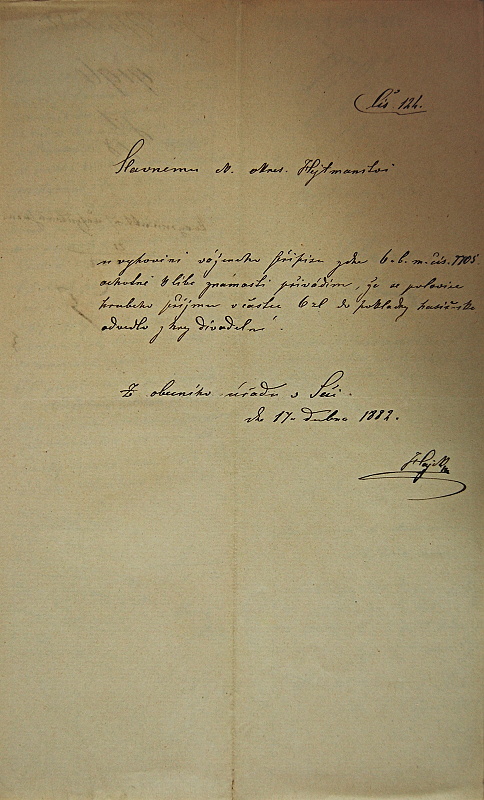 Čís. 124.
Slavnému okres. Hejtmanství
u vyhovění váženého přípisu zde 6. t. m. čís. 7705
ochotně k libé známosti přivádím, že se polovice
hrubého příjmu v částce 6 zl do pokladny hasičské
odvedlo z hry divadelní.
Z obecního úřadu v Seči.
dne 17. dubna 1882.